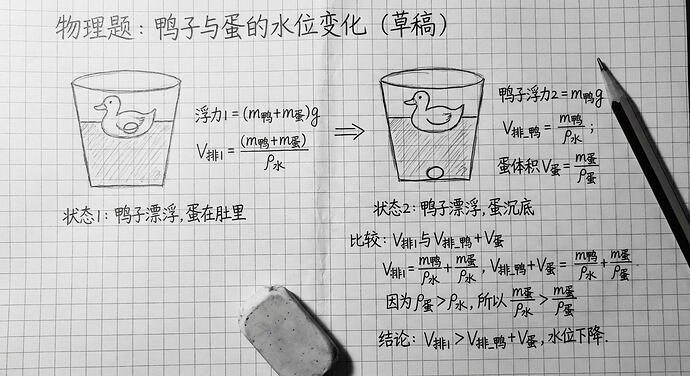 物理题：鸭子与蛋的水位变化（草稿）
浮力1=(m鸭+m蛋)g
V排1=(m鸭+m蛋)/ρ水
状态1：鸭子漂浮,蛋在肚里
⇒
鸭子浮力2=m鸭g
V排_鸭=m鸭/ρ水；
蛋体积V蛋=m蛋/ρ蛋
状态2：鸭子漂浮,蛋沉底
比较：V排1与V排_鸭+V蛋
V排1=m鸭/ρ水+m蛋/ρ水, V排_鸭+V蛋=m鸭/ρ水+m蛋/ρ蛋.
因为ρ蛋>ρ水,所以m蛋/ρ水>m蛋/ρ蛋
结论：V排1>V排_鸭+V蛋,水位下降.